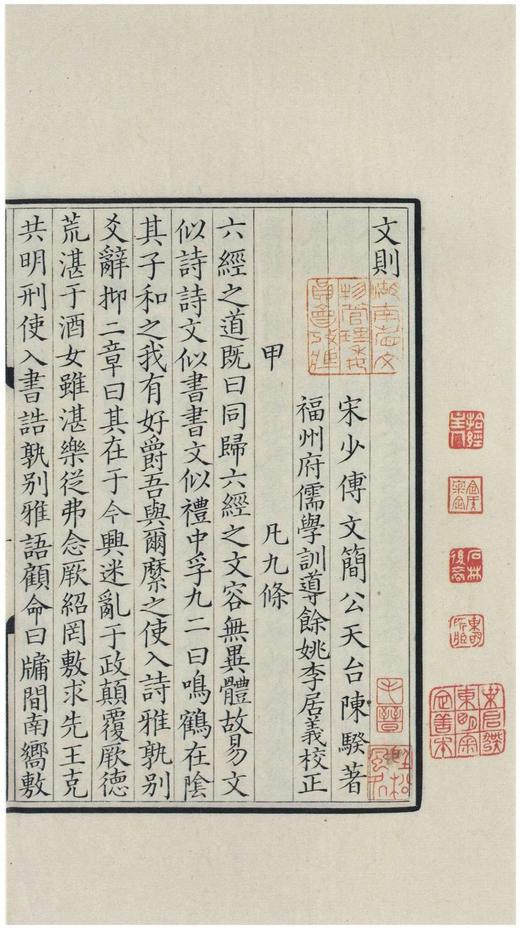 文則
宋少傅文簡公天台陳騤著
福州府儒學訓導餘姚李居義校正
甲 凡九條
六經之道既曰同歸六經之文容無異體故易文
似詩詩文似書書文似禮中孚九二曰鳴鶴在陰
其子和之我有好爵吾與爾縻之使入詩雅孰別
爻辭抑二章曰其在于今興迷亂于政顛覆厥德
荒湛于酒女雖湛樂從弗念厥紹罔敷求先王克
共明刑使入書誥孰別雅語顧命曰牖間南嚮敷